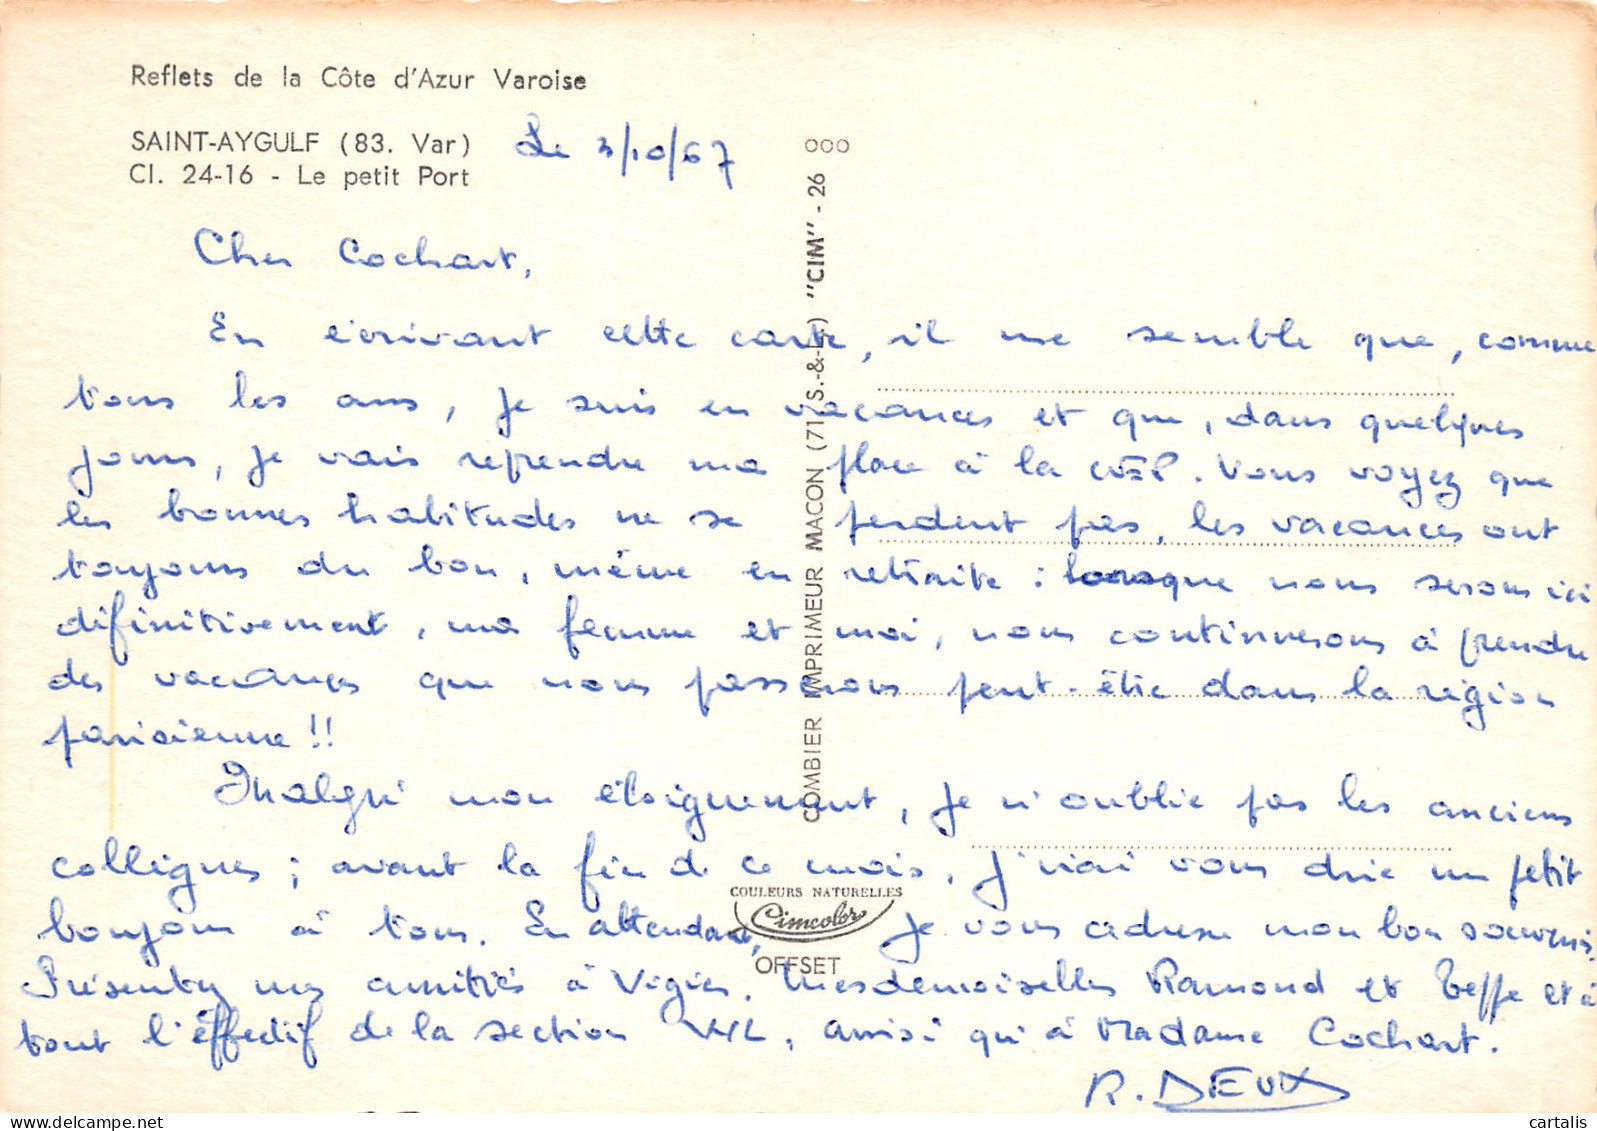 Reflets de la Côte d'Azur Varoise
SAINT-AYGULF (83. Var)
Cl. 24-16 - Le petit Port
Le 3/10/67
Cher Cochart,
En écrivant cette carte, il me semble que, comme
tous les ans, je suis en vacances et que, dans quelques
jours, je vais reprendre ma place à la . Vous voyez que
les bonnes habitudes ne se perdent pas, les vacances ont
toujours du bon, même en retraite : lorsque nous serons ici
définitivement, ma femme et moi, nous continuerons à prendre
des vacances que nous passerons peut-être dans la région
parisienne !!
Malgré mon éloignement, je n'oublie pas les anciens
collègues ; avant la fin de ce mois, j'irai vous dire un petit
bonjour à tous. En attendant, je vous adresse mon bon souvenir.
Présentez mes amitiés à Vigier, Mesdemoiselles Ramond et Teffe et à
tout l'effectif de la section , ainsi qu'à Madame Cochart.
R. DEUX
COMBIER IMPRIMEUR MACON (71 S.-&-L.) "CIM" - 26
COULEURS NATURELLES
Cimcolor
OFFSET
cartalis